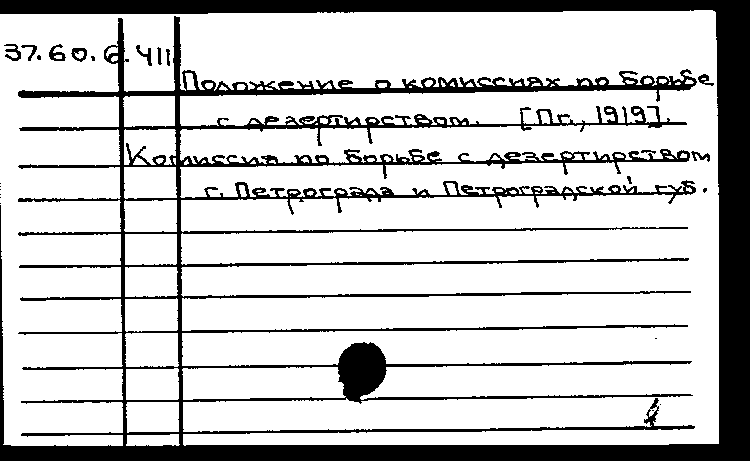 37.60.6.411
Положение о комиссиях по борьбе
с дезертирством. [Пг., 1919].
Комиссия по борьбе с дезертирством
г. Петрограда и Петроградской губ.